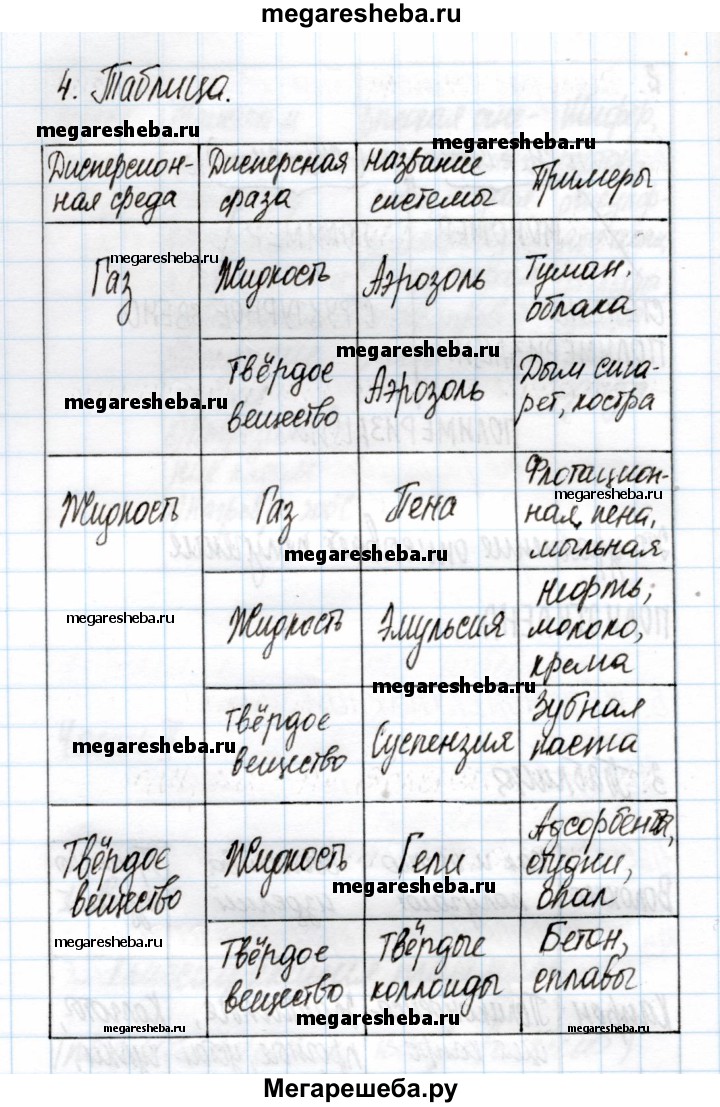 megaresheba.ru
4. Таблица.
megaresheba.ru
megaresheba.ru
Дисперсион-
ная среда
Дисперсная
фаза
Название
системы
Примеры
megaresheba.ru
megaresheba.ru
Газ
Жидкость
Аэрозоль
Туман,
облака
megaresheba.ru
Твёрдое
вещество
Аэрозоль
Дым сига-
рет, костра
megaresheba.ru
Жидкость
Газ
Пена
Флотацион-
ная пена,
мыльная
megaresheba.ru
megaresheba.ru
megaresheba.ru
Жидкость
Эмульсия
Нефть,
молоко,
крема
megaresheba.ru
Твёрдое
вещество
Суспензия
Зубная
паста
megaresheba.ru
Твёрдое
вещество
Жидкость
Гели
Адсорбента,
студни,
опал
megaresheba.ru
megaresheba.ru
Твёрдое
вещество
Твёрдые
коллоиды
Бетон,
сплавы
megaresheba.ru
megaresheba.ru
megaresheba.ru
Мегарешеба.ру